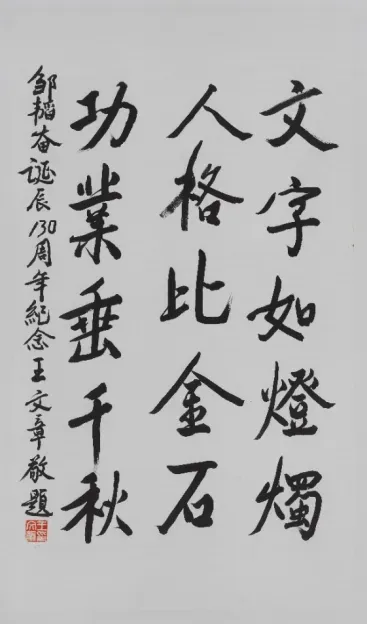 文字如燈燭
人格比金石
功業垂千秋
邹韬奋诞辰130周年纪念王文章敬題